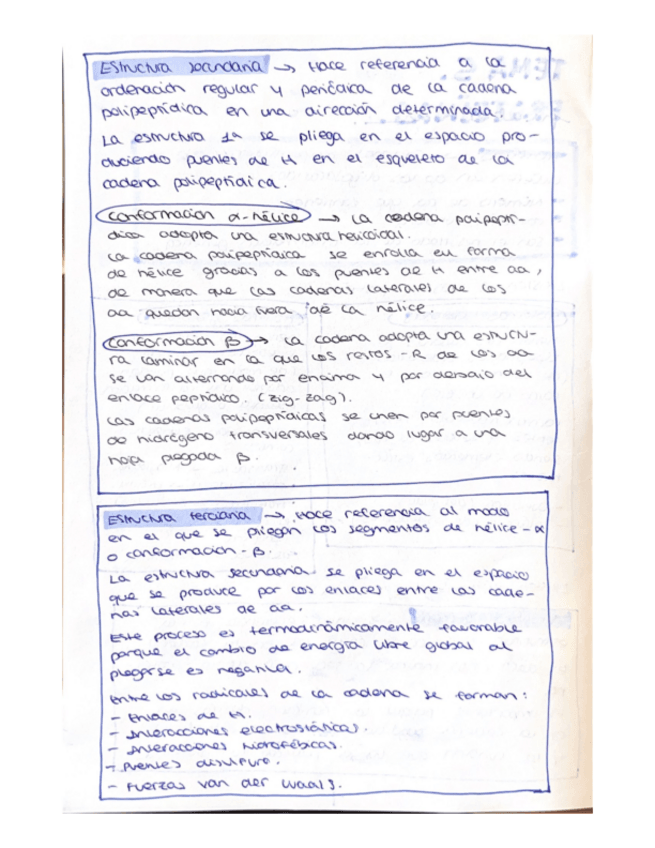 Estructura secundaria → Hace referencia a la
ordenación regular y periódica de la cadena
polipeptídica en una dirección determinada.
La estructura 1ª se pliega en el espacio pro-
duciendo puentes de H en el esqueleto de la
cadena polipeptídica.
Conformación α-hélice → La cadena polipeptí-
dica adopta una estructura helicoidal.
La cadena polipeptídica se enrolla en forma
de hélice gracias a los puentes de H entre aa,
de manera que las cadenas laterales de los
aa quedan hacia fuera de la hélice.
Conformación β → La cadena adopta una estructu-
ra laminar en la que los restos -R de los aa
se van alternando por encima y por debajo del
enlace peptídico. (zig-zag).
Las cadenas polipeptídicas se unen por puentes
de hidrógeno transversales dando lugar a una
hoja plegada β.
Estructura terciaria → Hace referencia al modo
en el que se pliegan los segmentos de hélice-α
o conformación-β.
La estructura secundaria se pliega en el espacio
que se produce por los enlaces entre las cade-
nas laterales de aa.
Este proceso es termodinámicamente favorable
porque el cambio de energía libre global al
plegarse es negativa.
Entre los radicales de la cadena se forman:
- Enlaces de H.
- Interacciones electrostáticas.
- Interacciones hidrofóbicas.
- Puentes disulfuro.
- Fuerzas van der Waals.